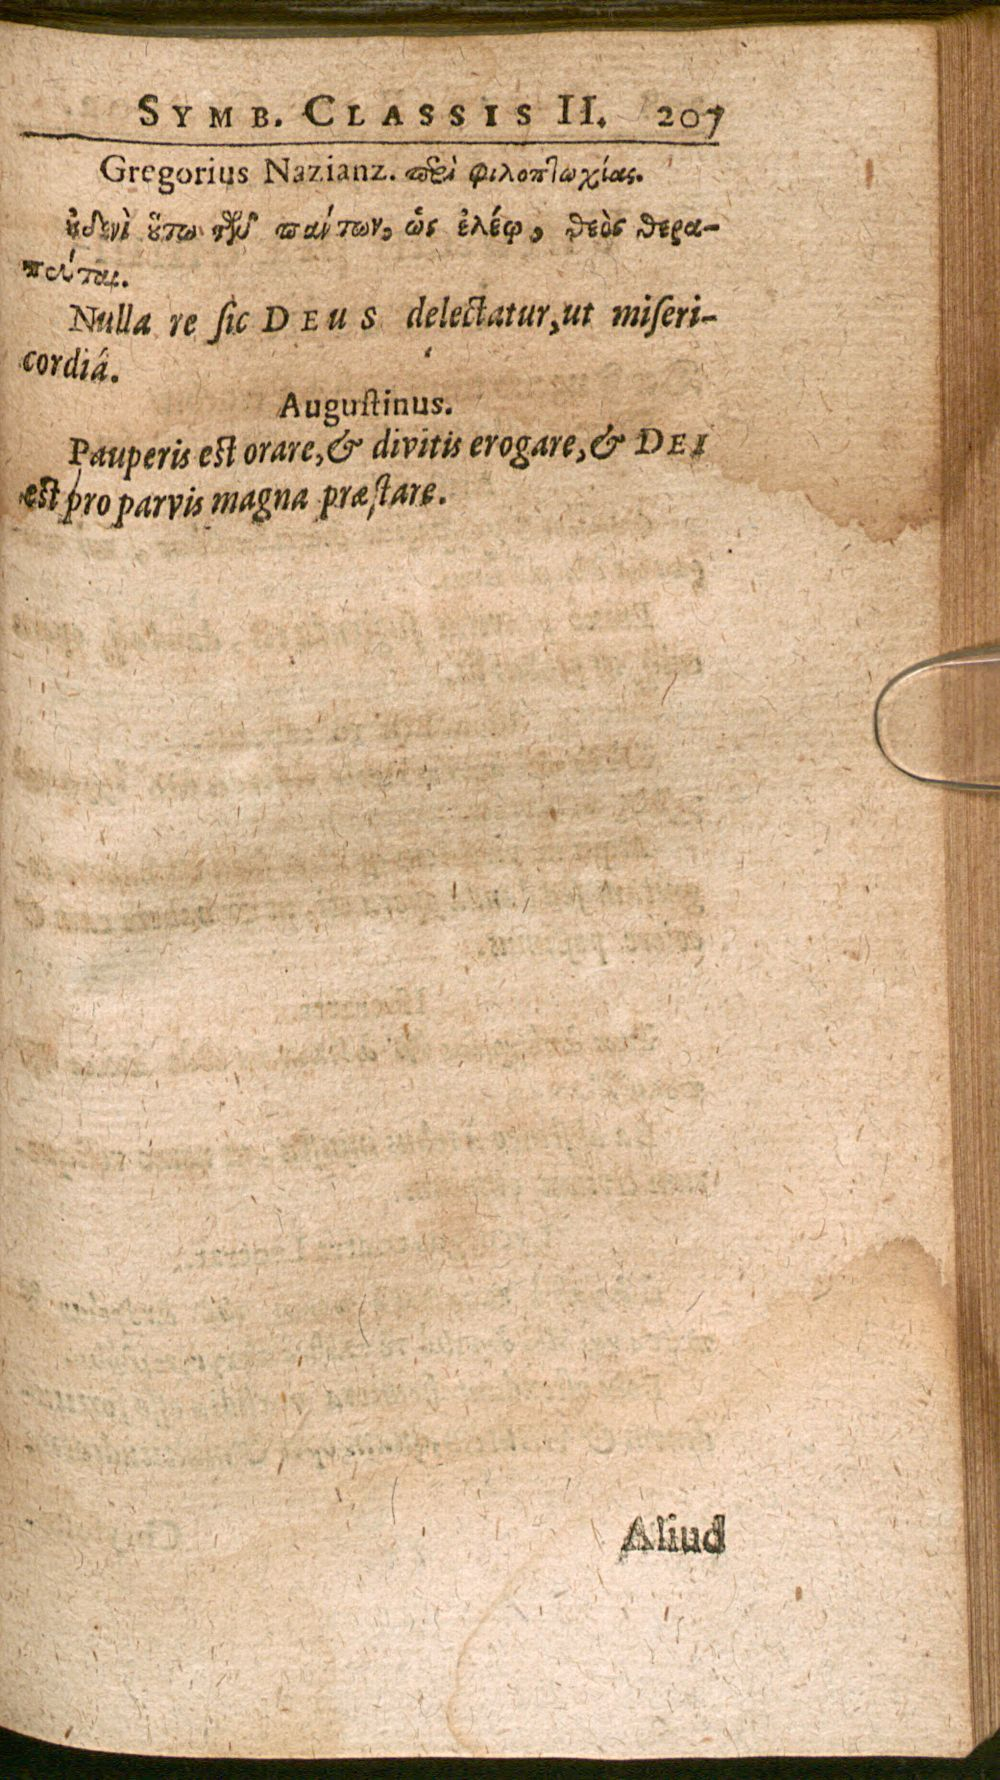 SYMB. CLASSIS II. 207
Gregorius Nazianz. περὶ φιλοπτωχίας.
ȣ̓δενὶ ȣ̔́τω τῶν πάντων, ὡς ἐλέῳ, θεὸς θερα-
πεύεται.
Nulla re ſic DEUS delectatur, ut miſeri-
cordiâ.
Auguſtinus.
Pauperis eſt orare, & divitis erogare, & DEI
eſt pro parvis magna præſtare.
Aliud